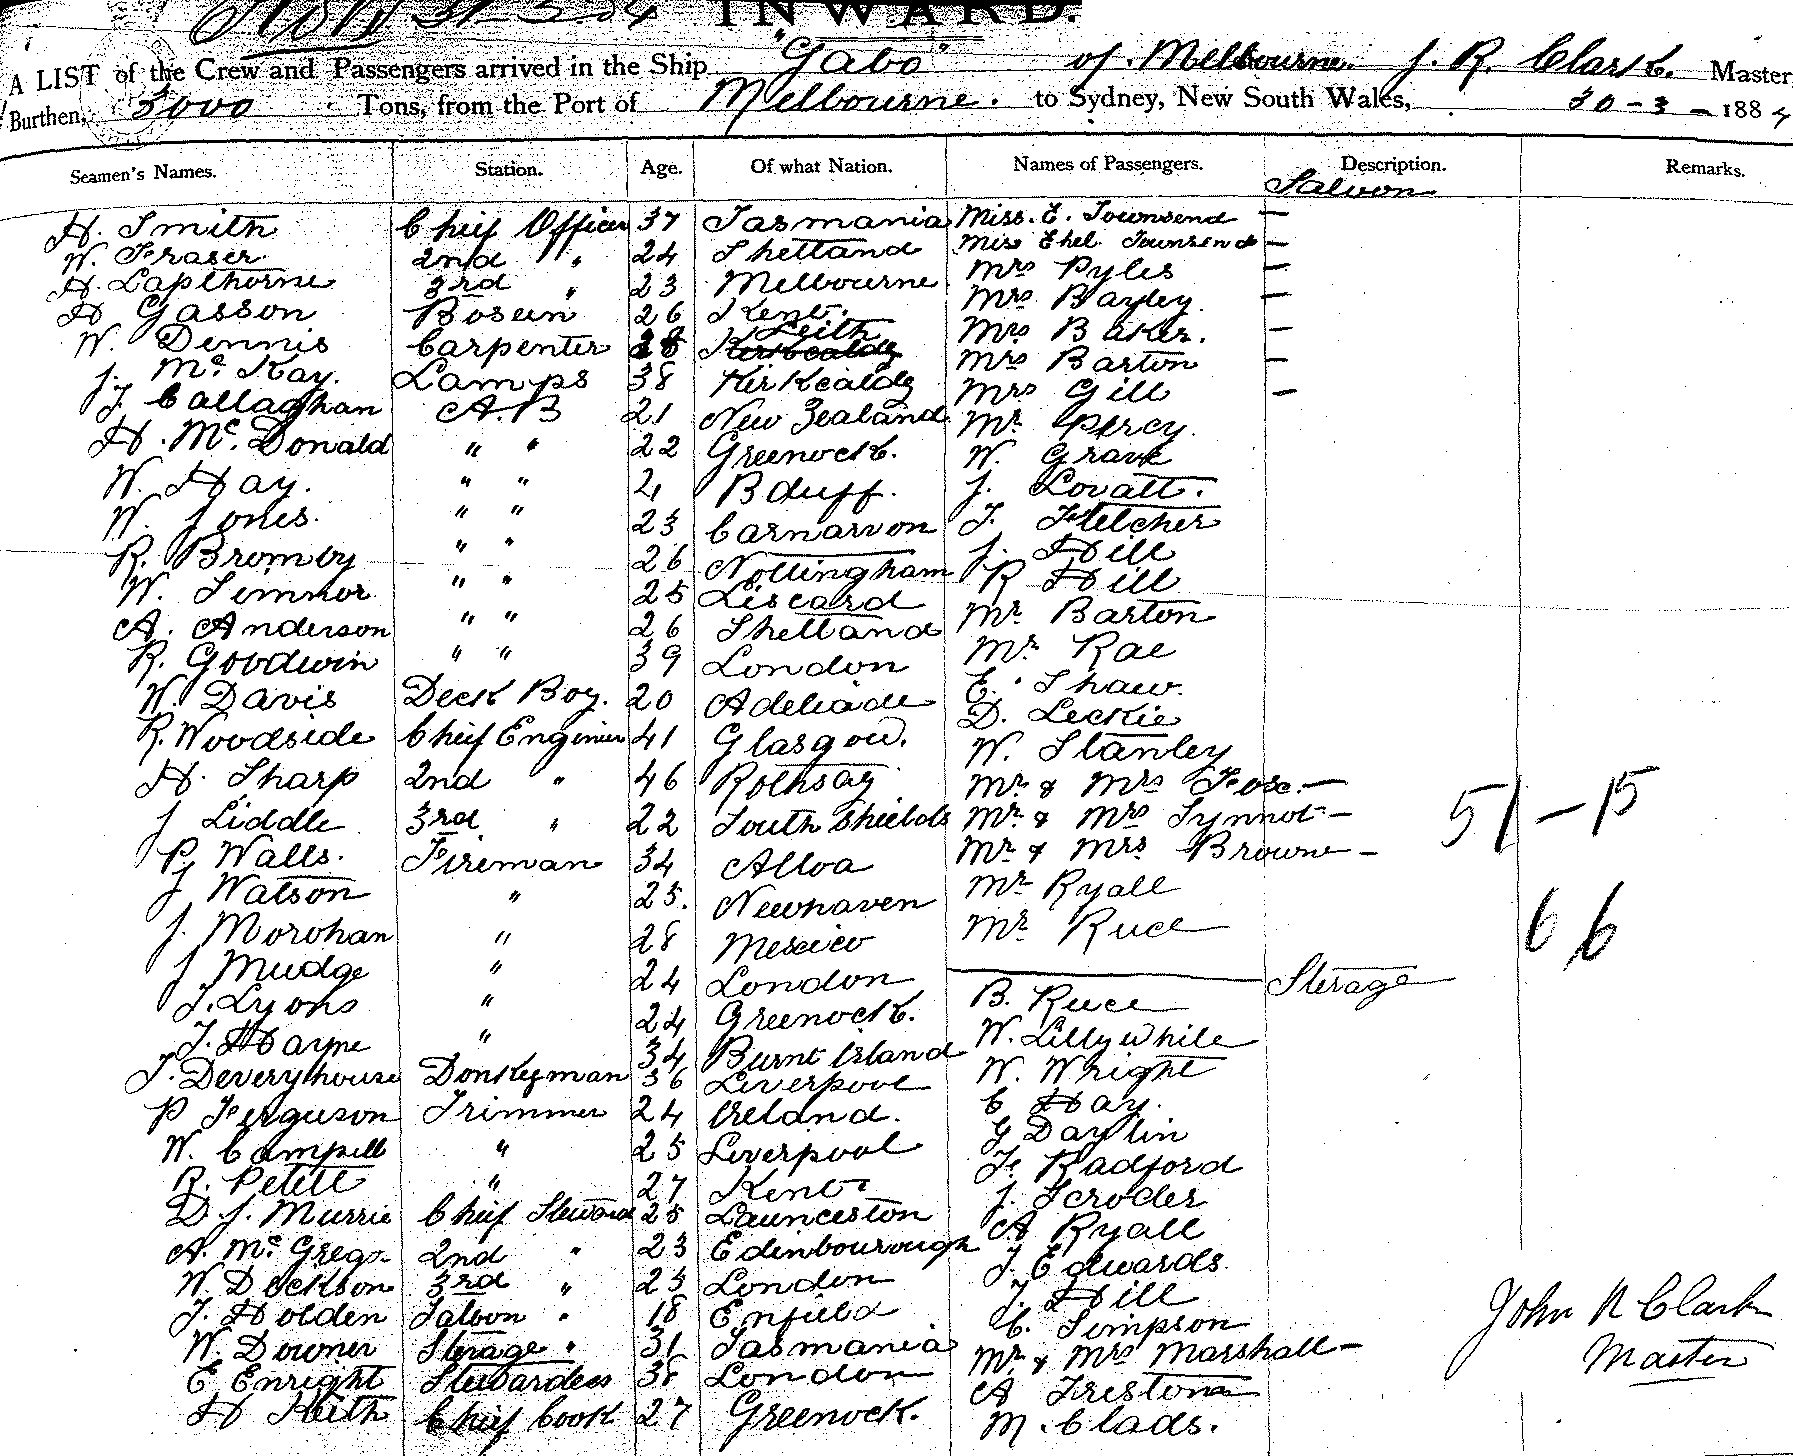 31-3-84 INWARD.
A LIST of the Crew and Passengers arrived in the Ship "Gabo" of Melbourne. J. R. Clark. Master
Burthen, 3000 Tons, from the Port of Melbourne. to Sydney, New South Wales, 30-3-1884
Seamen's Names. Station. Age. Of what Nation. Names of Passengers. Description. Remarks.
Saloon
H. Smith Chief Officer 37 Tasmania Miss. E. Townsend —
W. Fraser 2nd " 24 Shetland Miss Ethel Townsend —
H. Lapthorne 3rd " 23 Melbourne Mrs Pyles —
H Gasson Bosun 26 Kent. Mrs Bayley. —
W. Dennis Carpenter 28 Leith Mrs Baker. —
J. McKay. Lamps 38 Kirkcaldy Mrs Barton —
J. Callaghan A.B 21 New Zealand Mrs Gill —
H. McDonald " " 22 Greenock. Mr Percy.
W. Hay. " " 21 Bduff. W. Grave
W. Jones. " " 23 Carnarvon J. Lovatt.
R. Bromby " " 26 Nottingham T. Fletcher
W. Simmor " " 25 Liscard J. Hill
A. Anderson " " 26 Shetland R Hill
R. Goodwin " " 39 London Mr Barton
W. Davis Deck Boy. 20 Adeliade Mr Rae
R. Woodside Chief Engineer 41 Glasgow. E. Shaw.
H. Sharp 2nd " 46 Rothsay D. Leckie
J Liddle 3rd " 22 South Shields W. Stanley
P. Walls. Fireman 34 Alloa Mr & Mrs Fox. —
J Watson " 25. Newhaven Mr & Mrs Synnot —
J. Morohan " 28 Mexico Mr & Mrs Browne —
J Mudge " 24 London Mr Ryall
T. Lyons " 24 Greenock. Mr Ruce
51 — 15
66
Sterage
J. Hayne " 34 Burnt Island B. Ruce
T. Deveryhouse Donkeyman 36 Liverpool W. Lillywhite
P Ferguson Trimmer 24 Ireland. W. Wright
W. Campell " 25 Liverpool C Hay.
R. Petett " 27 Kent G Daylin
D. J. Murrie Chief Steward 25 Launceston F. Radford
A. McGregor 2nd " 23 Edinbourough J. Scroder
W. Dickson 3rd " 25 London A Ryall
T. Holden Saloon " 18 Enfield J. Edwards.
W. Downer Sterage " 31 Tasmania J. Hill
E Enright Stewardess 38 London C. Simpson
H Keith Chief Cook 27 Greenock. Mr & Mrs Marshall —
A Trestone
M. Clads.
John R Clark
Master